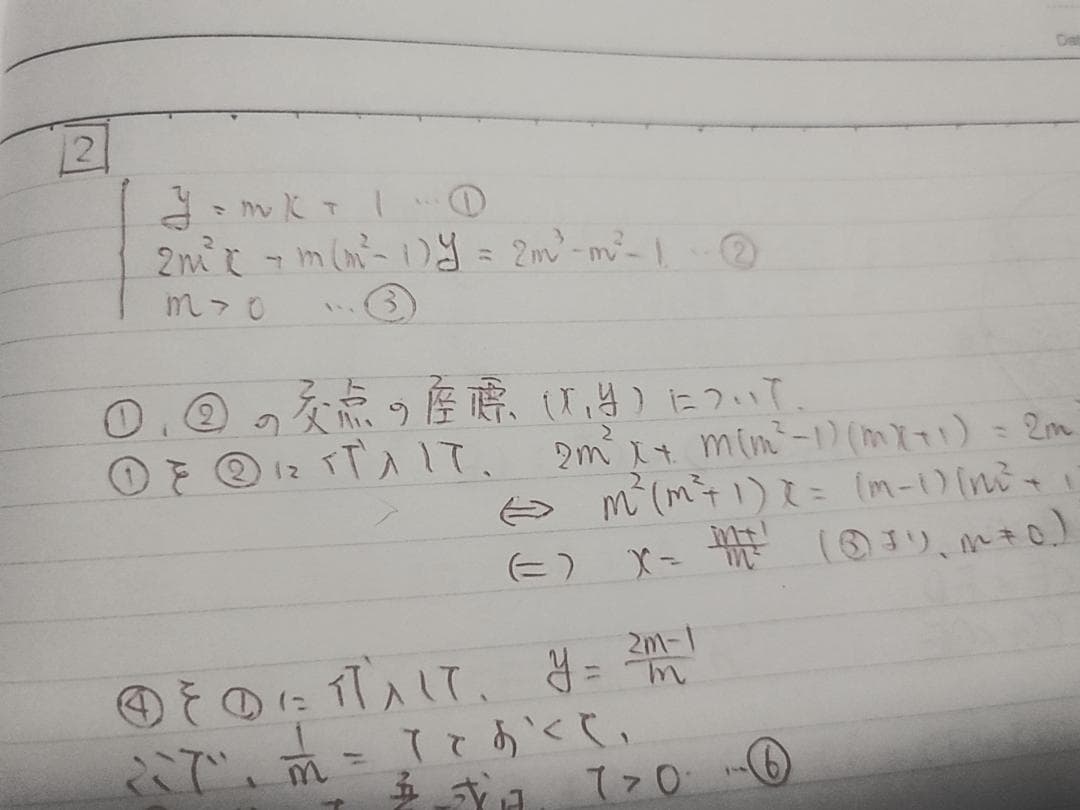 2
y = mx + 1 … ①
2m²x + m(m²-1)y = 2m³-m²-1 … ②
m > 0 … ③
①, ②の交点の座標、(x, y) について、
①を②に代入して、 2m²x + m(m²-1)(mx+1) = 2m
⇔ m²(m²+1)x = (m-1)(m²+1
⇔ x = \frac{m+1}{m²} (③より、m≠0)
④を①に代入して、 y = \frac{2m-1}{m}
ここで、\frac{1}{m} = Tとおくと、
T > 0 … ⑥